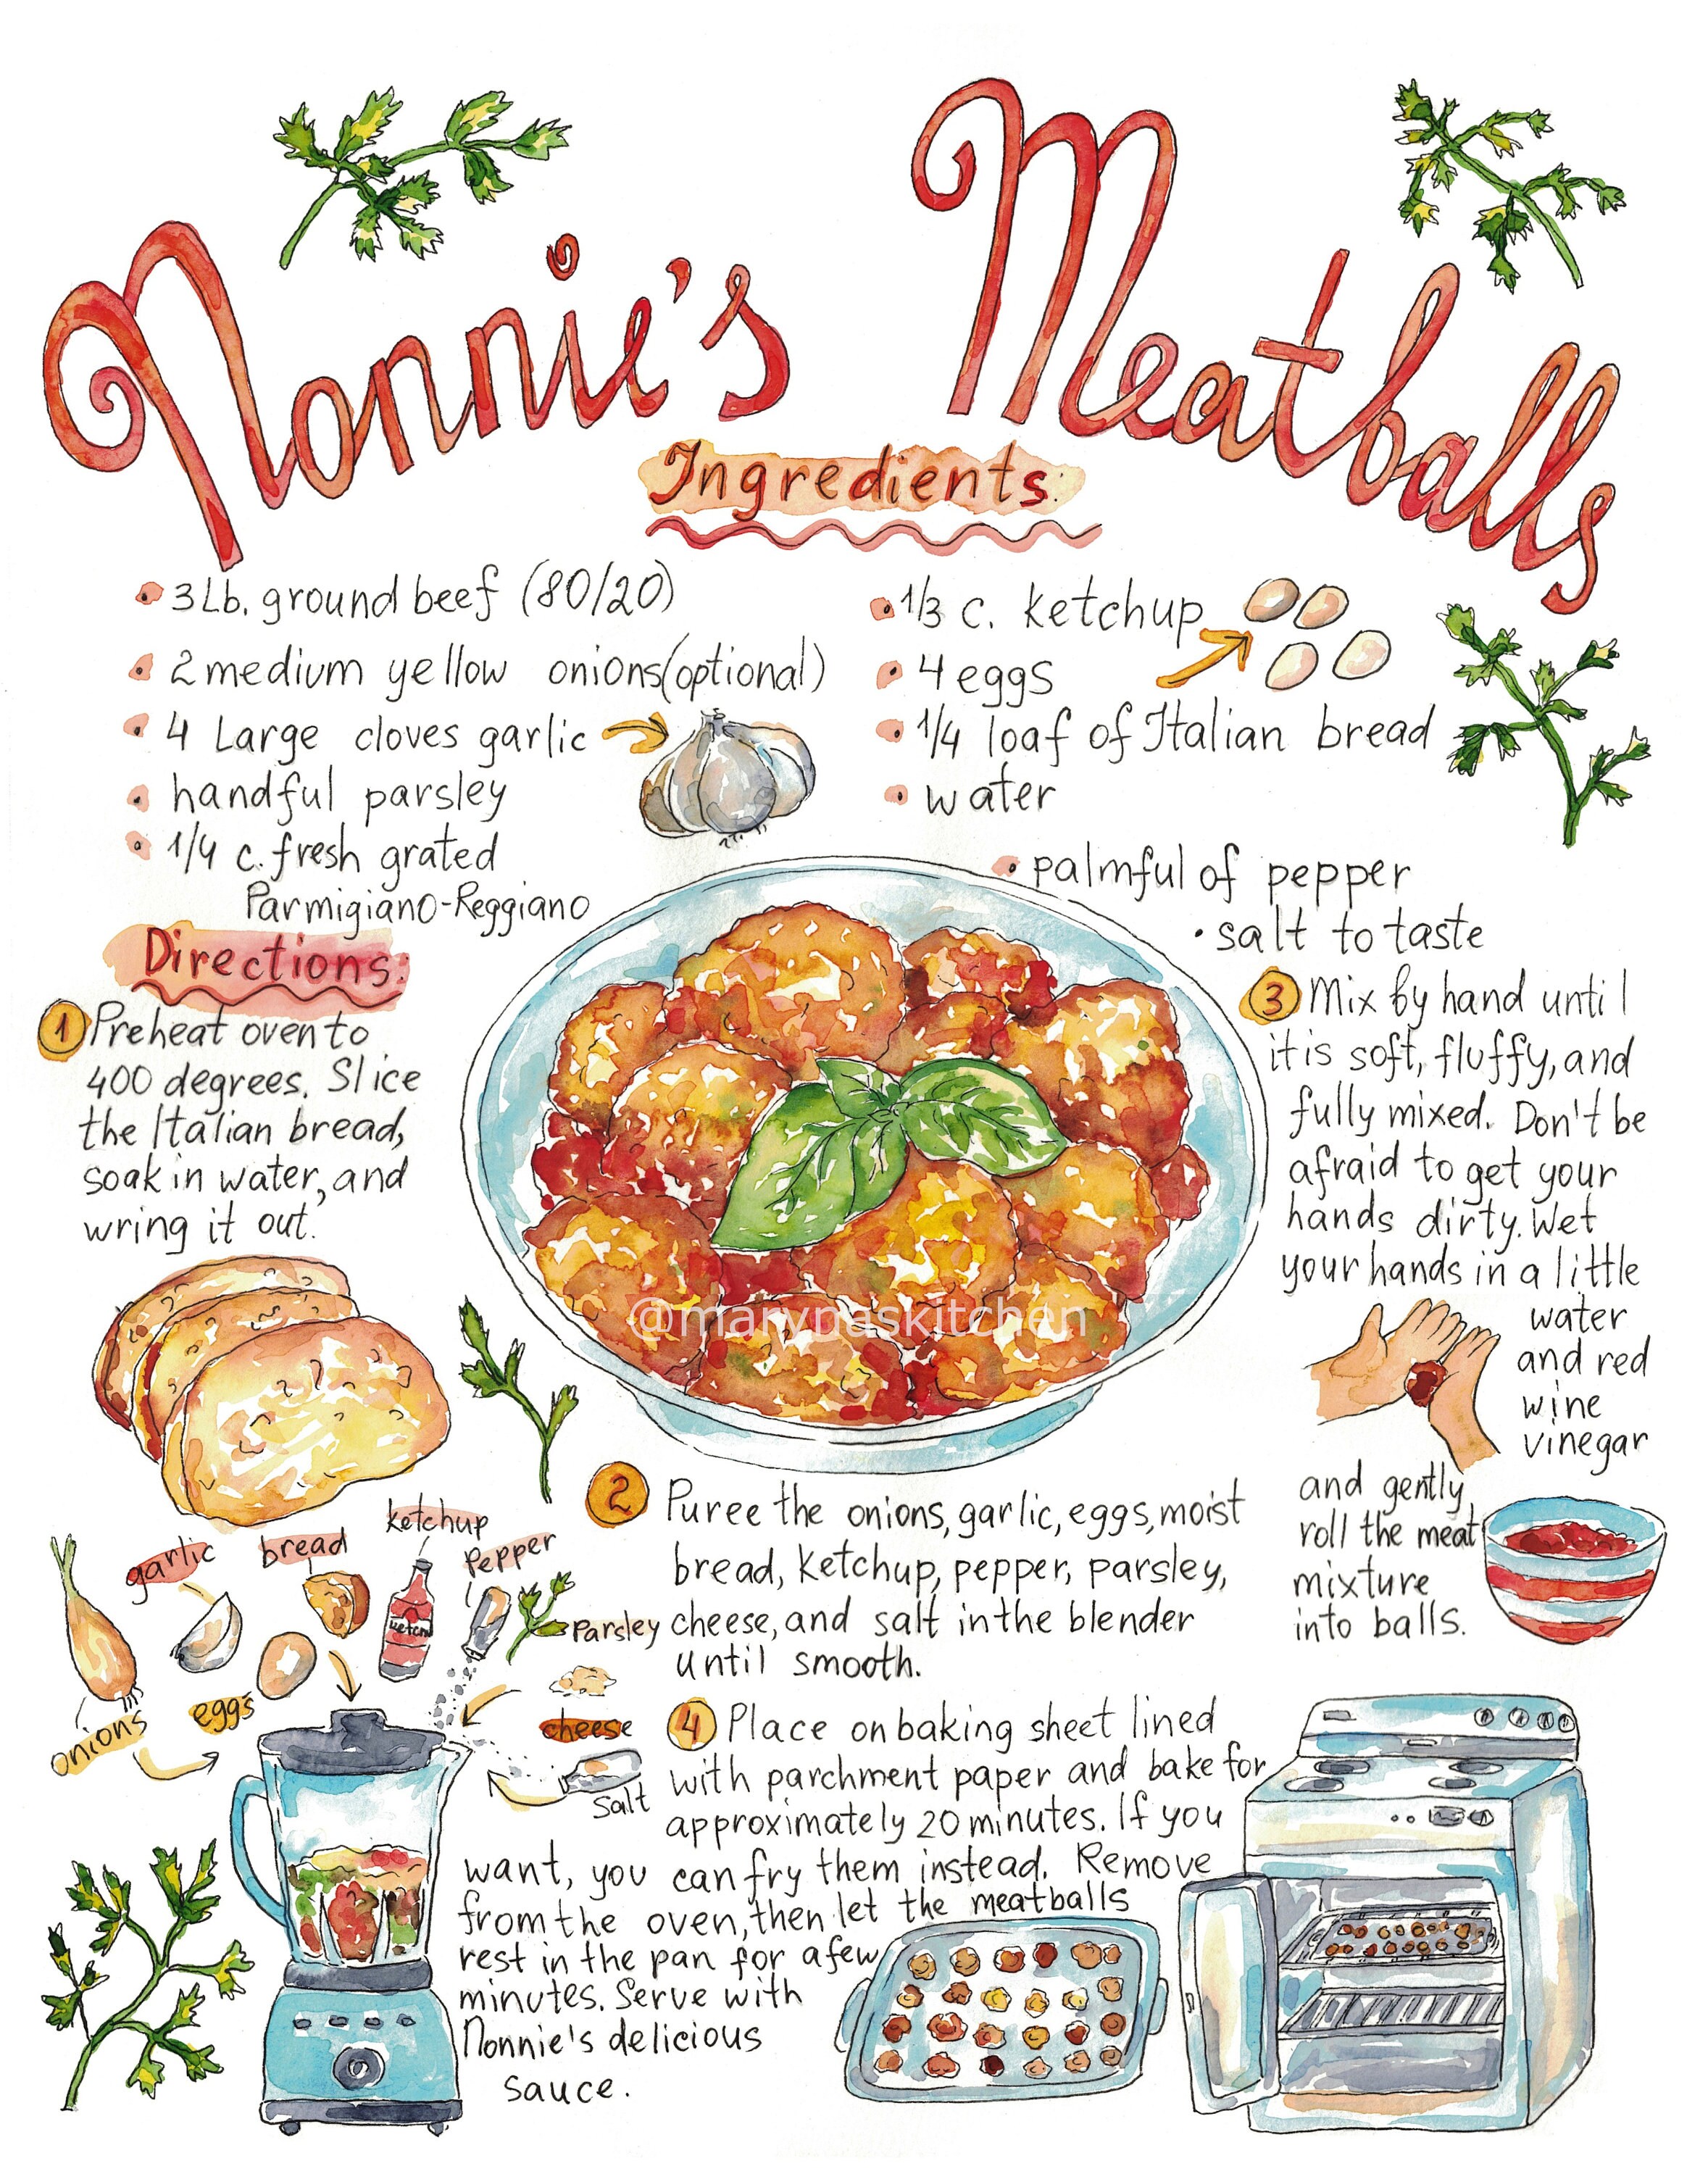 Nonnie's Meatballs
Ingredients:
• 3 Lb. ground beef (80/20)
• 2 medium yellow onions (optional)
• 4 Large cloves garlic
• handful parsley
• 1/4 c. fresh grated
Parmigiano-Reggiano
• 1/3 c. ketchup
• 4 eggs
• 1/4 loaf of Italian bread
• water
• palmful of pepper
• salt to taste
Directions:
1 Preheat oven to
400 degrees. Slice
the Italian bread,
soak in water, and
wring it out.
2 Puree the onions, garlic, eggs, moist
bread, ketchup, pepper, parsley,
cheese, and salt in the blender
until smooth.
3 Mix by hand until
it is soft, fluffy, and
fully mixed. Don't be
afraid to get your
hands dirty. Wet
your hands in a little
water
and red
wine
vinegar
and gently
roll the meat
mixture
into balls.
4 Place on baking sheet lined
with parchment paper and bake for
approximately 20 minutes. If you
want, you can fry them instead. Remove
from the oven, then let the meatballs
rest in the pan for a few
minutes. Serve with
Nonnie's delicious
sauce.
@marypaskitchen
garlic
bread
ketchup
pepper
Parsley
onions
eggs
cheese
salt